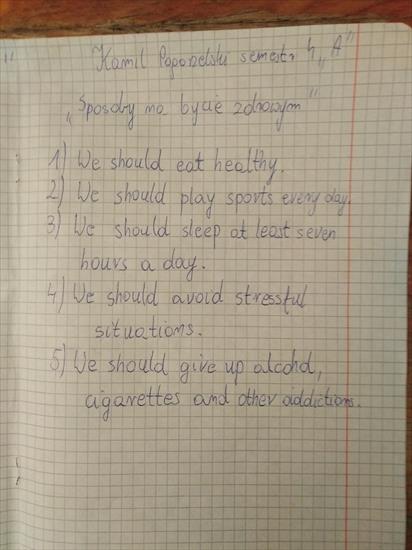 Kamil semestr 4 „A"
„Sposoby na bycie zdrowym"
1) We should eat healthy.
2) We should play sports every day.
3) We should sleep at least seven
hours a day.
4) We should avoid stressful
situations.
5) We should give up alcohol,
cigarettes and other addictions.